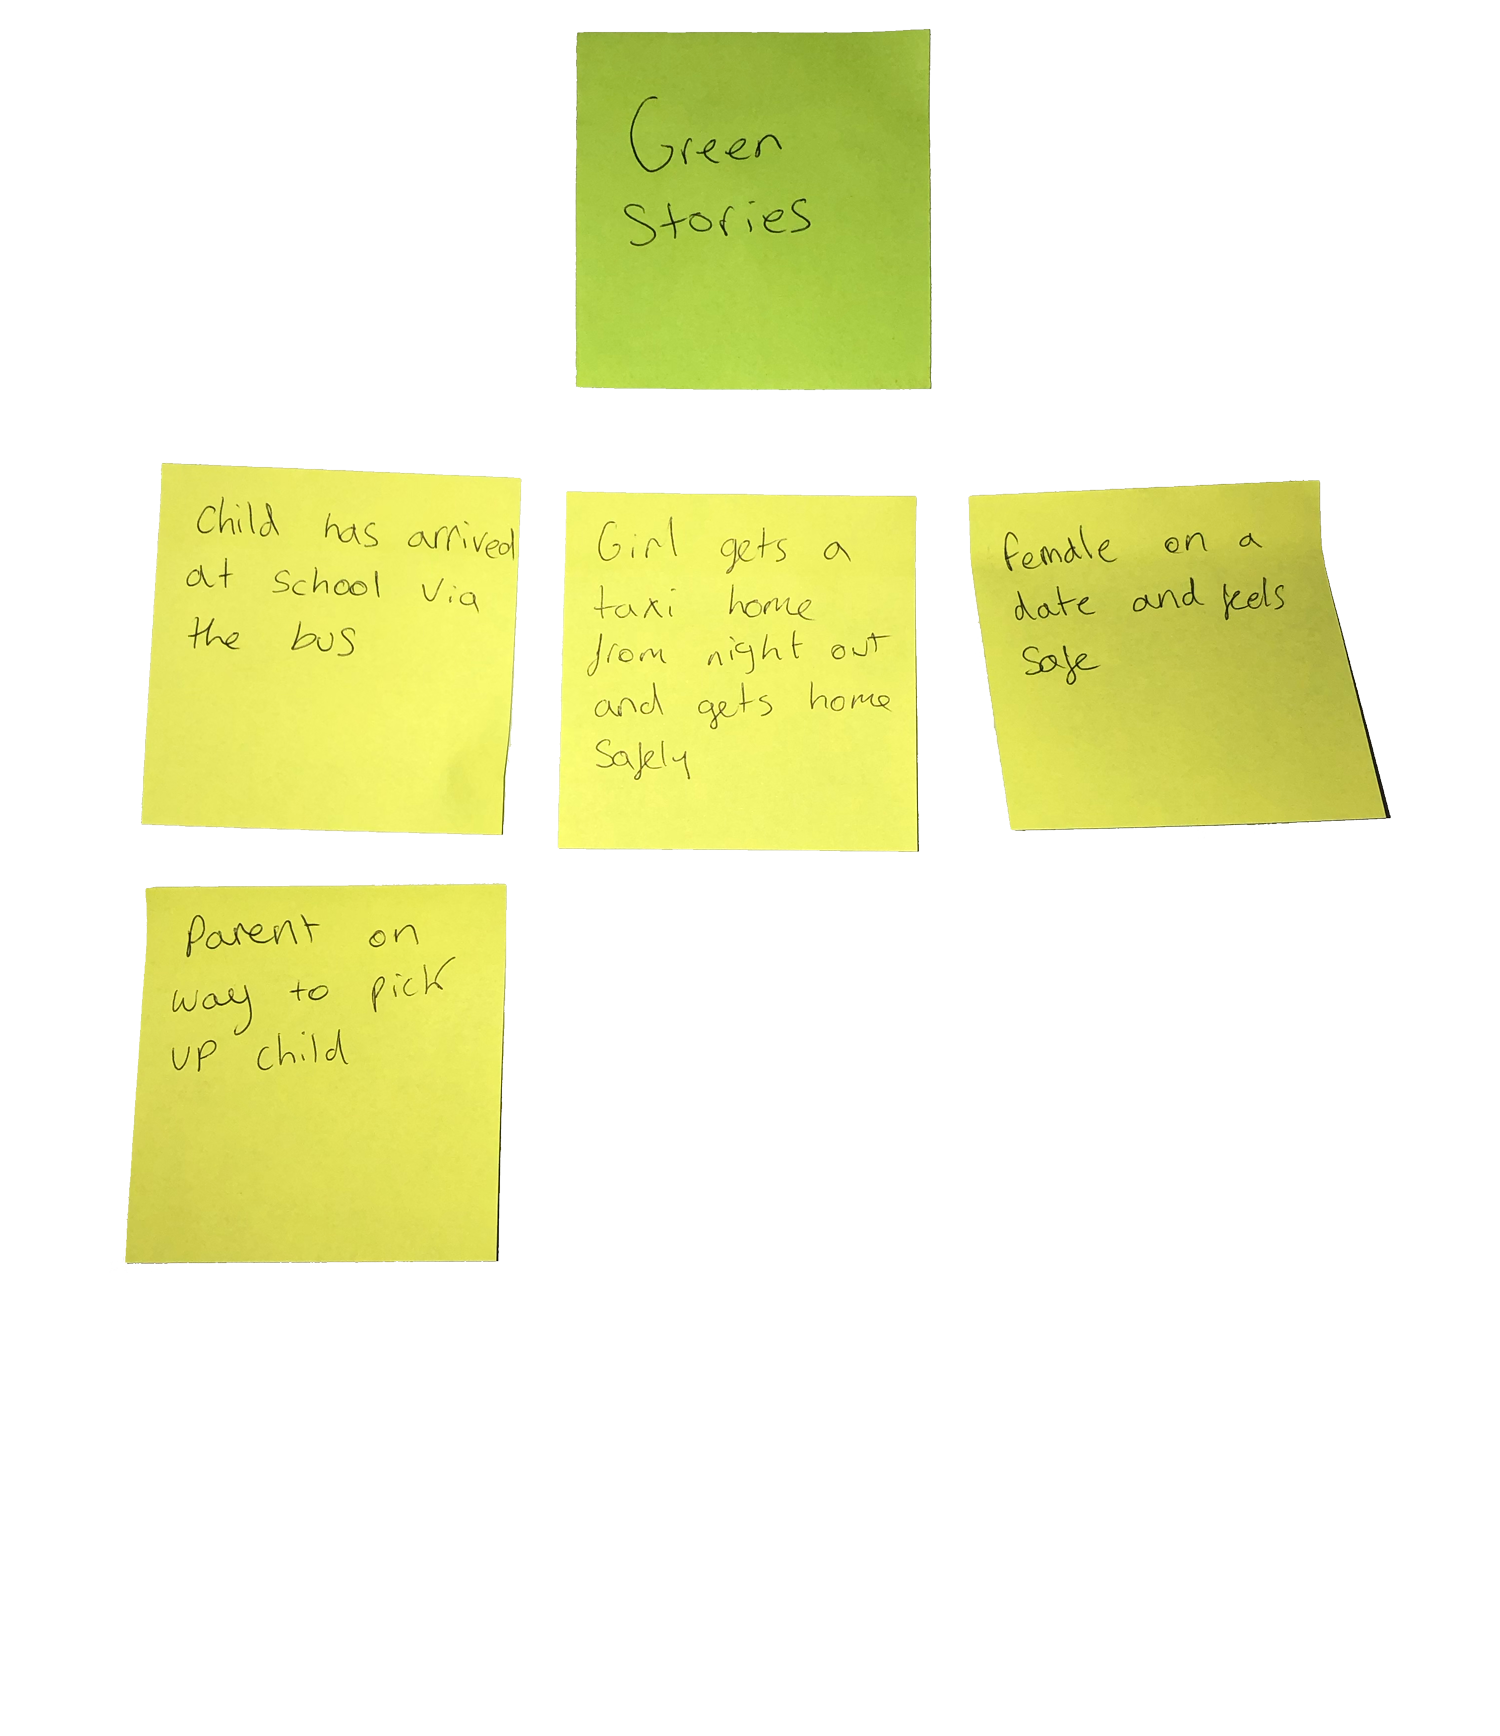 Green
Stories
Child has arrived
at school via
the bus
Girl gets a
taxi home
from night out
and gets home
safely
Female on a
date and feels
safe
Parent on
way to pick
up child